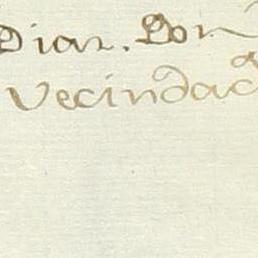 Diar. Don
Vecindac